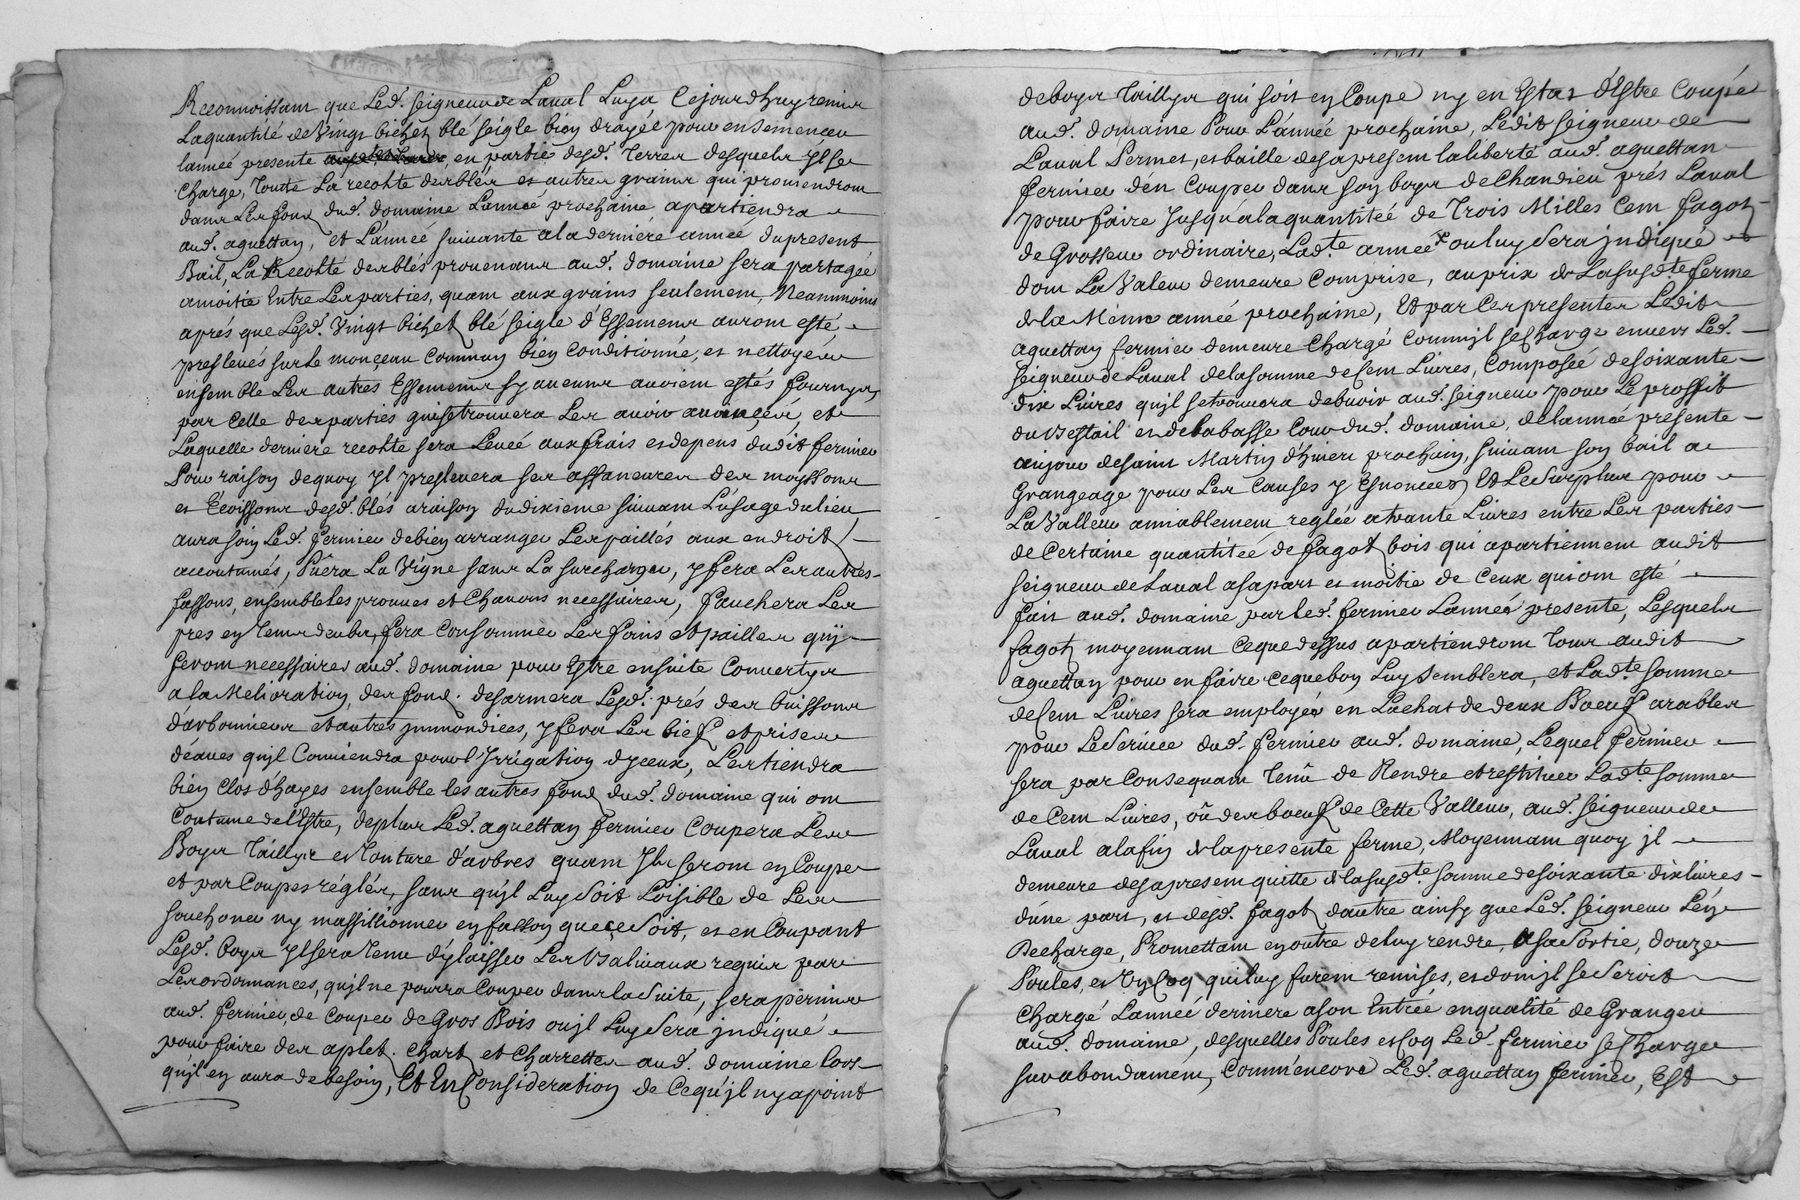 Reconnoissant que Led. seigneur de Laval Luy a Cejourdhuy remis
La quantité de Vingt bichet blé seigle bien drayée pour ensemencer
lanneé presente en partie desd. Terres desquels Il se
Charge, Toute La recolte des blés et autres grains qui proviendront
dans Les fond dud. domaine L'anneé prochaine apartiendra
aud. aguettan, et L'anneé suivante a la derniére anneé du present
Bail, La Recolte des blés provenans aud. domaine sera partagée
amoitie Entre Les parties, quant aux grains seulement, Neanmoins
aprés que Lesd. Vingt bichet blé seigle d'Essemens auront esté
preslevés sur Le monçeau Commun bien Conditionné, et nettoyé
ensemble Les autres Essemens sy aucuns avoient estés fournys
par Celle des parties qui se trouvera Les avoir avançéé, et
Laquelle derniere recolte sera Leveé aux frais et depens dudit fermier
Pour raison dequoy Il preslevera ses affaneures des moyssons
et Ecoissons desd. blés a raison du dixieme suivant L'usage du lieu
aura soin Led. fermier de bien arranger Les paillés aux endroit
accoutumés, Puéra La Vigne sans La surcharger, y fera Les autres
fassons, ensemble Les provues et Chavons necessaires, fauchera Les
pres en Tems deubs, fera Consommer Les foins et pailles quy
seront necessaires aud. domaine pour Estre ensuite Convertys
a la Melioration des fond. desarmera Lesd. prés des buissons
d'arbonnieres et autres jmmondices, y fera Les bief et prises
déaues qujl Conviendra pour l'Irrigation d'yceux, Les tiendra
bien Clos d'hayes ensemble les autres fond dud. domaine qui ont
Coutume de L'Estre, de plus Led. aguettan fermier Coupera Les
Boys Taillys et Tonture d'arbres quant Ils seront en Coupe
et par Coupes réglés, sans qu'jl Luy soit Loisible de Les
souchoner ny massillionner en fasson que ce soit, et en Coupant
Lesd. boys Il sera Tenu d'y laisser Les Balivaux requis par
Les ordonnances, qujl ne pourra Couper dans la suite, sera permis
aud. fermier, de couper de Gros Bois ou jl Luy sera jndiqué
pour faire des aplet. Chart et Charrettes aud. domaine lors
qu'jl en aura de besoin, Et En Consideration de Ce qu'jl ny a point
de boys Taillys qui soit en Coupe ny en Estat d'Estre Coupé
aud. domaine Pour L'annéé prochaine, Ledit seigneur de
Laval Permet, et baille des apresent la liberté aud. aguettan
fermier d'en Couper dans son boys de Chandieu prés Laval
pour faire Jusqu'a la quantiteé de Trois Milles Cent fagot
de Grosseur ordinaire, Lad.te anneé ou luy sera jndiqué
dont La Valeur demeure Comprise, au prix de La susd.te ferme
de la Méme annéé prochaine, Et par Ces presentes Ledit
aguettan fermier demeure Chargé Comm'jl se Charge envers Led.
seigneur de Laval de la somme de Cent Livres, Composéé de soixante
dix Livres qu'jl se trouvera debvoir aud. seigneur pour Le proffit
du Bestail et de la basse Cour dud. domaine, de lanneé presente
au jour de saint Martin d'hiver prochain, suivant son bail a
Grangeage pour Les Causes y Enoncées Et Le surplus pour
La Valleur amiablement reglée a trante Livres entre Les parties
de Certaine quantiteé de fagot bois qui apartiennent audit
seigneur de Laval a sa part et moitie de Ceux qui ont esté
fait aud. domaine par led. fermier Lanneé presente, Lesquels
fagot moyennant Ce que dessus apartiendront Tous audit
aguettan pour en faire ce que bon Luy semblera, et Lad.te somme
de Cent Livres sera employéé en L'achat de deux Boeuf arables
pour Le service dud. fermier aud. domaine, Lequel fermier
sera par Consequant Tenû de Rendre et restituer Lad.te somme
de Cent Livres, oû des boeuf de Cette Valleur, aud. seigneur de
Laval a la fin de la presente ferme, Moyennant quoy jl
demeure des apresent quitte de la susd.te somme de soixante dix livres
d'une part, et desd. fagot d'autre ainsy que Led. seigneur L'en
Decharge, Promettant en outre de luy rendre, a sa sortie, douze
Poules, et Un Coq qui luy furent remises, et dont jl se seroit
Chargé L'anneé derniere a son Entreé en qualité de Granger
aud. domaine, desquelles Poules et Coq Led. fermier se Charge
surabondament, Comm'encore Led. aguettan fermier, Est